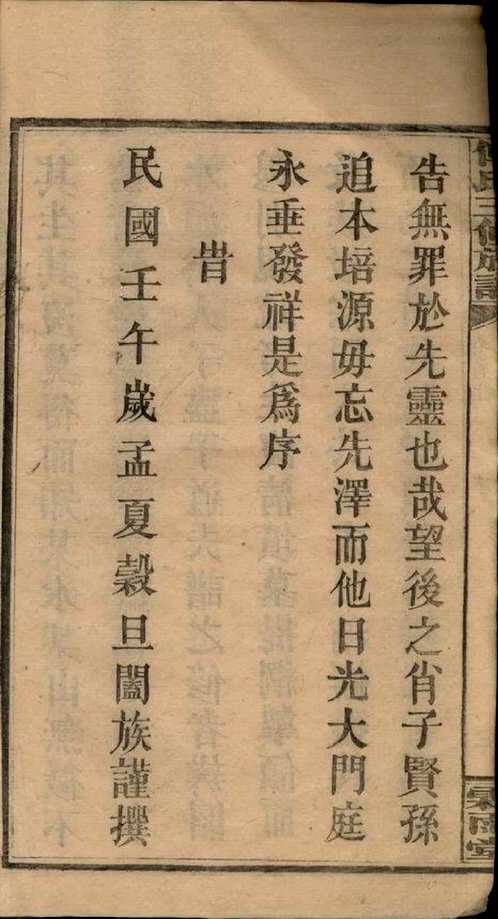 告無罪於先靈也哉望後之肖子賢孫
追本培源毋忘先澤而他日光大門庭
永垂發祥是爲序
旹
民國壬午歲孟夏穀旦闔族謹撰
氏三修族譜